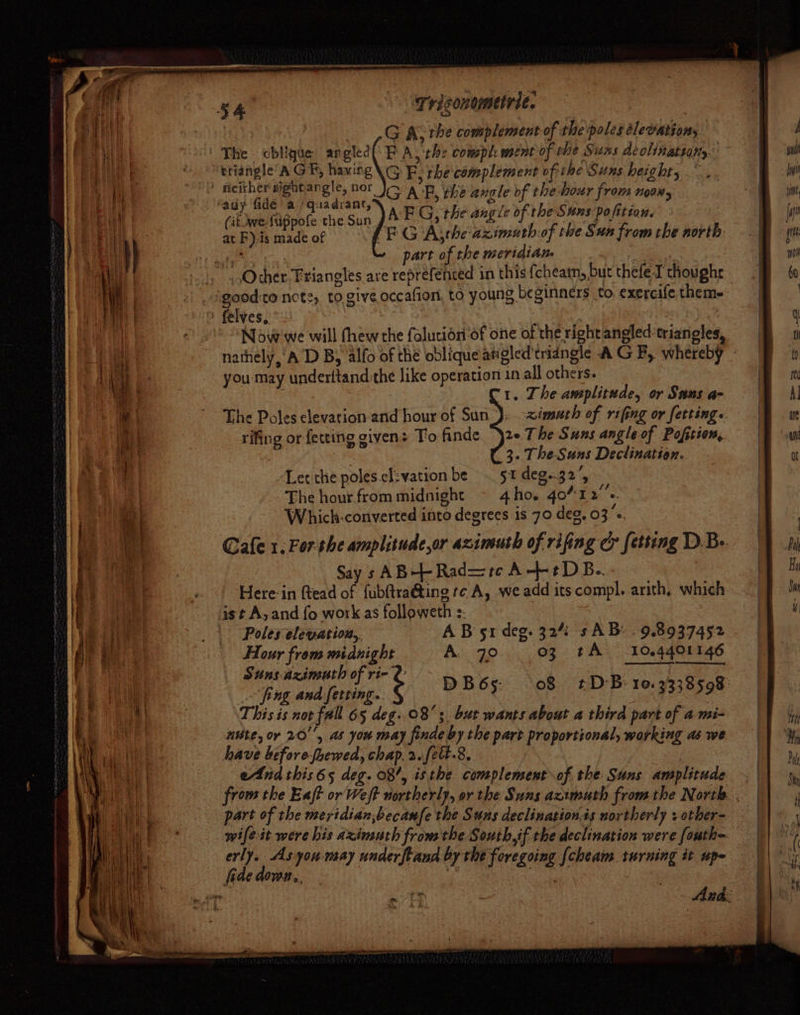 54 Trigonometrie.
G A, the complement of the poles elevation,
The oblique angled F A, the complement of the Suns declination,
triangle A G F, having G F, the complement of the Suns height,
neither rightangle, nor G A F, the angle of the hour from noon,
any side a quadrant, A F G, the angle of the Suns position.
(if we suppose the Sun F G A, the azimuth of the Sun from the north
at F) is made of part of the meridian.
Other Triangles are represented in this scheam, but these I thought
good to note, to give occasion to young beginners to exercise them-
selves.
Now we will shew the solution of one of the rightangled triangles,
namely, A D B, also of the oblique angled triangle A G F, whereby
you may understand the like operation in all others.
1. The amplitude, or Suns a-
The Poles elevation and hour of Sun zimuth of rising or setting.
rising or setting given: To finde 2. The Suns angle of Position,
3. The Suns Declination.
Let the poles elevation be 51 deg. 32′,
The hour from midnight 4 ho. 40′ 12″.
Which converted into degrees is 70 deg. 03′.
Case 1. For the amplitude, or azimuth of rising & setting D B.
Say s A B + Rad = tc A + t D B.
Here in stead of substracting tc A, we add its compl. arith. which
is t A, and so work as followeth:
Poles elevation, A B 51 deg. 32′: s A B 9.8937452
Hour from midnight A 70 03 t A 10.4401146
Suns azimuth of ri-
sing and setting. D B 65 08 t D B 10.3338598
This is not full 65 deg. 08′; but wants about a third part of a mi-
nute, or 20″, as you may finde by the part proportional, working as we
have before shewed, chap. 2. sect. 8.
And this 65 deg. 08′, is the complement of the Suns amplitude
from the East or West northerly, or the Suns azimuth from the North
part of the meridian, because the Suns declination is northerly: other-
wise it were his azimuth from the South, if the declination were south-
erly. As you may understand by the foregoing scheam turning it up-
side down.
And